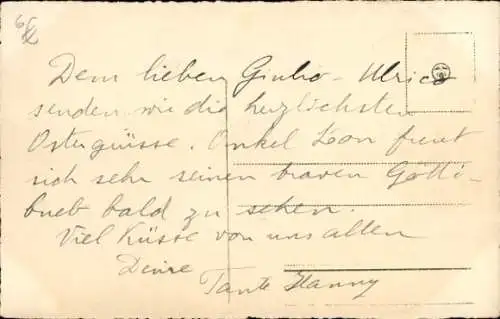 Dem lieben Giulio-Ulrico
senden wir die herzlichsten
Ostergrüsse. Onkel Leon freut
sich sehr seinen braven Götti-
bueb bald zu sehen.
Viel Küsse von uns allen
Deine
Tante Hanny